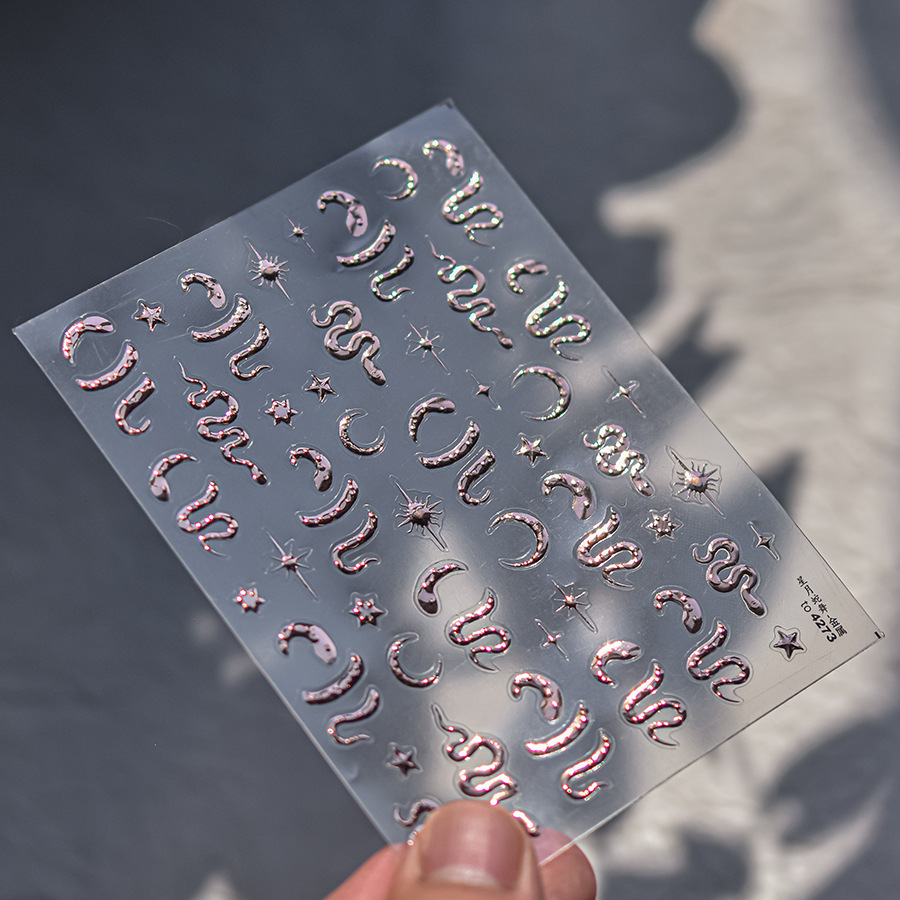 星月蛇舞-金属
to 4273